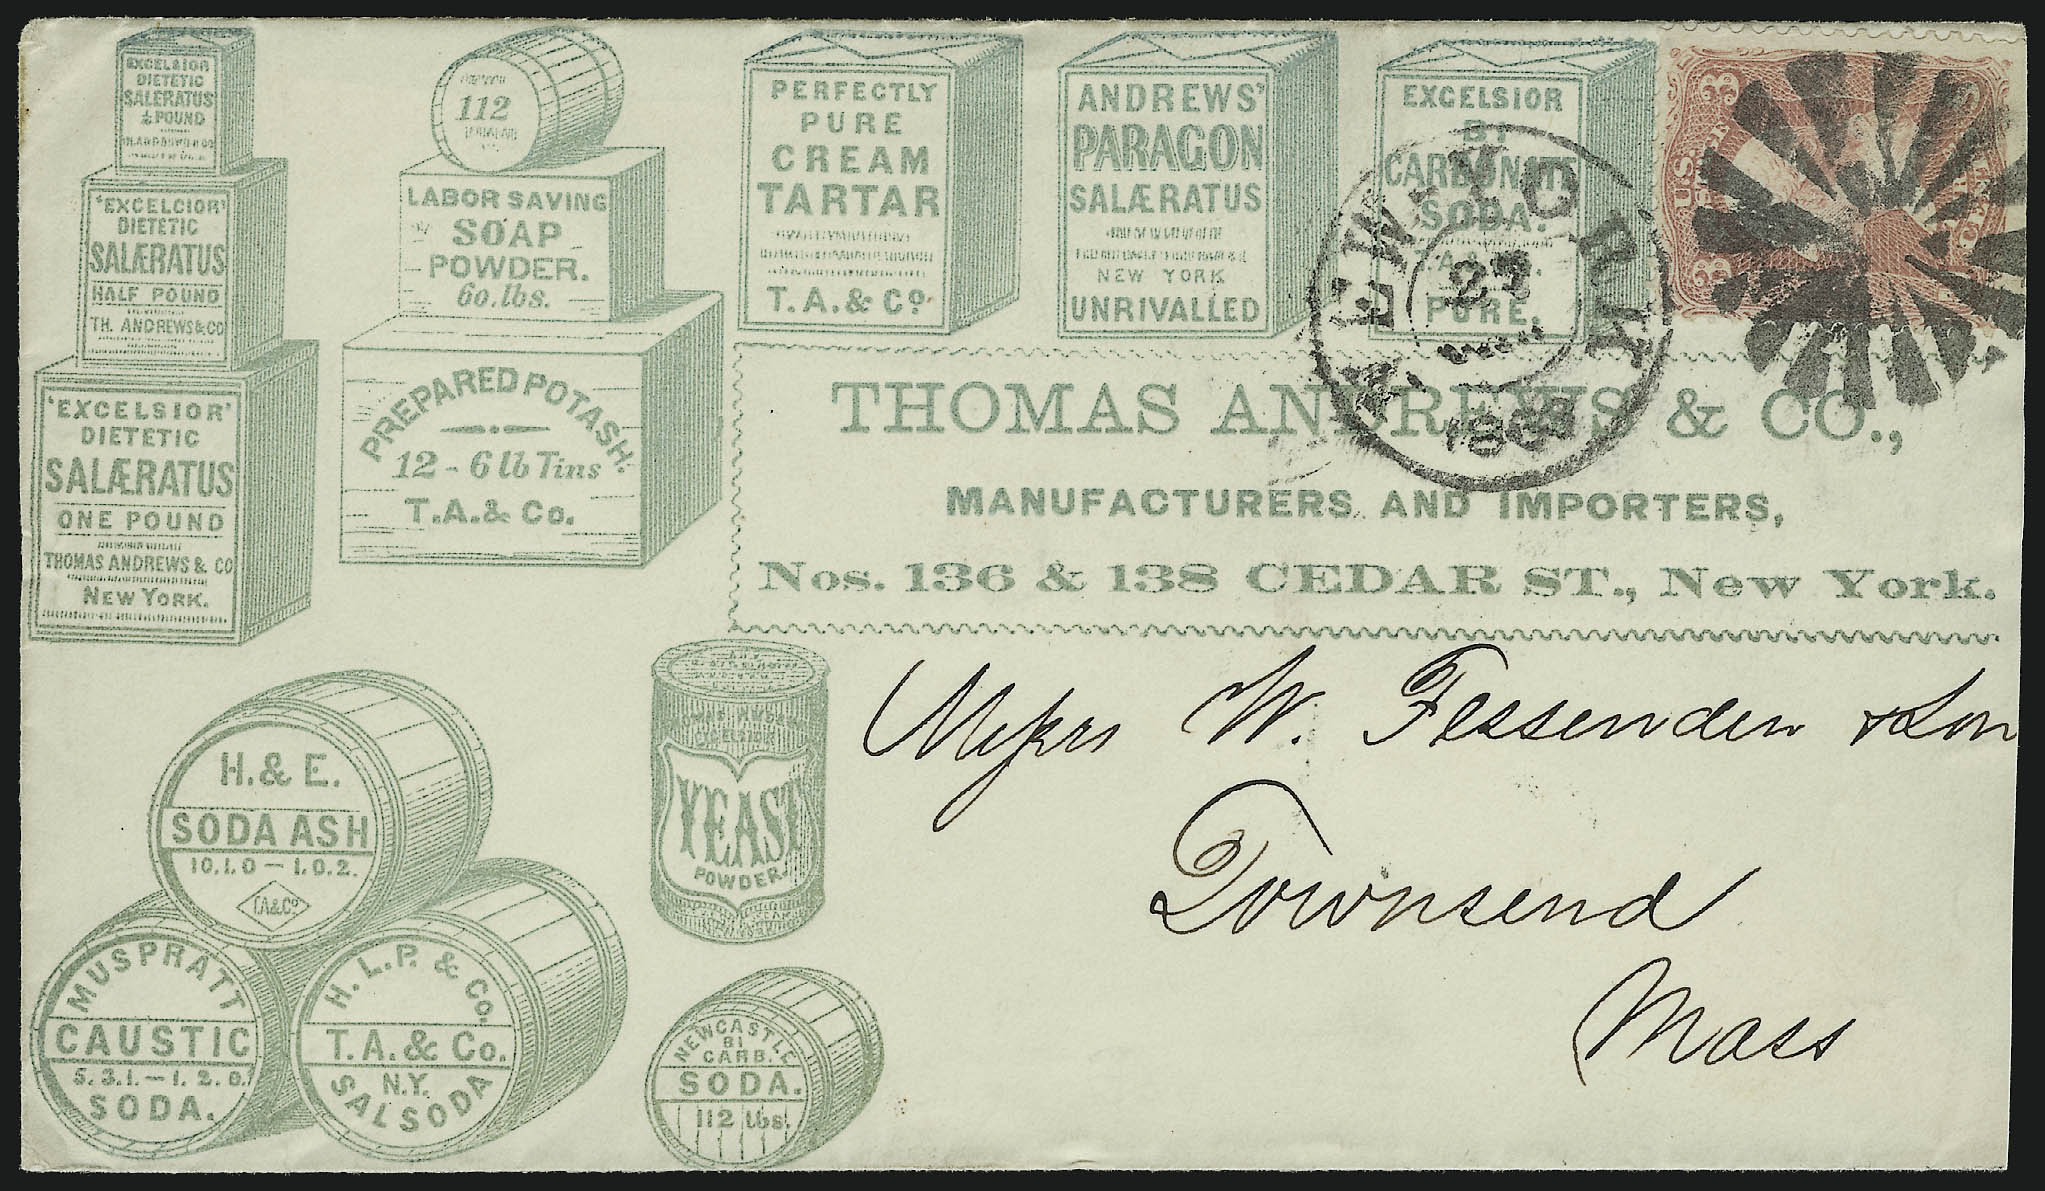 EXCELSIOR
DIETETIC
SALERATUS
½ POUND
'EXCELCIOR'
DIETETIC
SALÆRATUS
HALF POUND
TH. ANDREWS & CO
'EXCELSIOR'
DIETETIC
SALÆRATUS
ONE POUND
THOMAS ANDREWS & CO
NEW YORK.
112
LABOR SAVING
SOAP
POWDER.
60. lbs.
PREPARED POTASH.
12 - 6 lb Tins
T.A. & Co.
PERFECTLY
PURE
CREAM
TARTAR
T. A. & Co.
ANDREWS'
PARAGON
SALÆRATUS
NEW YORK
UNRIVALLED
EXCELSIOR
BI
CARBONATE
SODA.
T. A & Co.
PURE.
NEW-YORK
27
U.S.
3
3
THOMAS ANDREWS & CO.,
MANUFACTURERS AND IMPORTERS,
Nos. 136 & 138 CEDAR ST., New York.
Messrs W. Fessenden & Son
Townsend
Mass
H. & E.
SODA ASH
10.1.0 – 1.0.2.
T.A & Co
MUSPRATT
CAUSTIC
5.3.1. – 1.2.0.
SODA.
H. L. P. & Co.
T. A. & Co.
N.Y.
SAL SODA
YEAST
POWDER.
NEWCASTLE
BI
CARB.
SODA.
112 lbs.